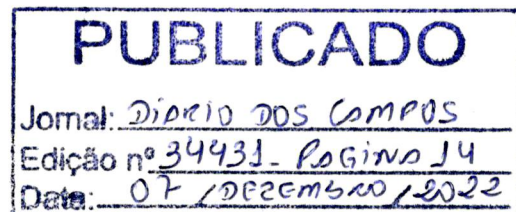 PUBLICADO
Jornal: DIARIO DOS CAMPOS
Edição nº 34431 - PAGINA 14
Data: 07 / DEZEMBRO / 2022